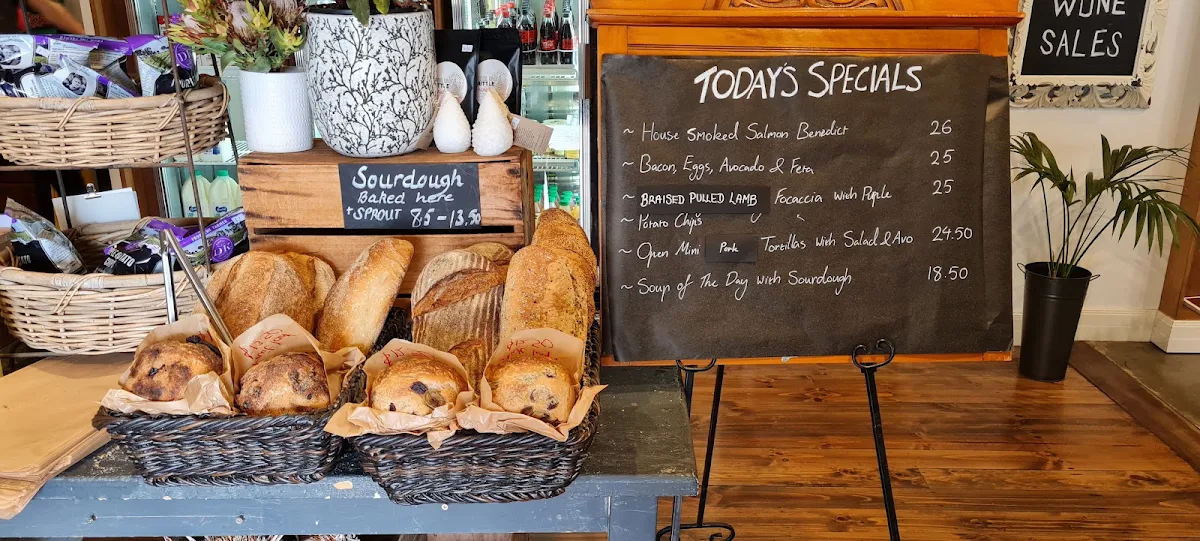 WINE
SALES
TODAY'S SPECIALS
~ House Smoked Salmon Benedict 26
~ Bacon, Eggs, Avocado & Feta 25
~ BRAISED PULLED LAMB Focaccia with Pickle 25
~ Potato Chips
~ Open Mini Pork Tortillas with Salad & Avo 24.50
~ Soup of The Day with Sourdough 18.50
Sourdough
Baked here
+ SPROUT 8.5 - 13.50